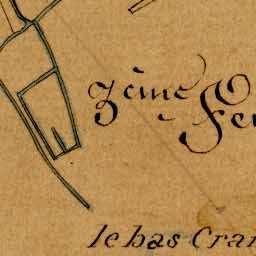 3ème
le bas Cran